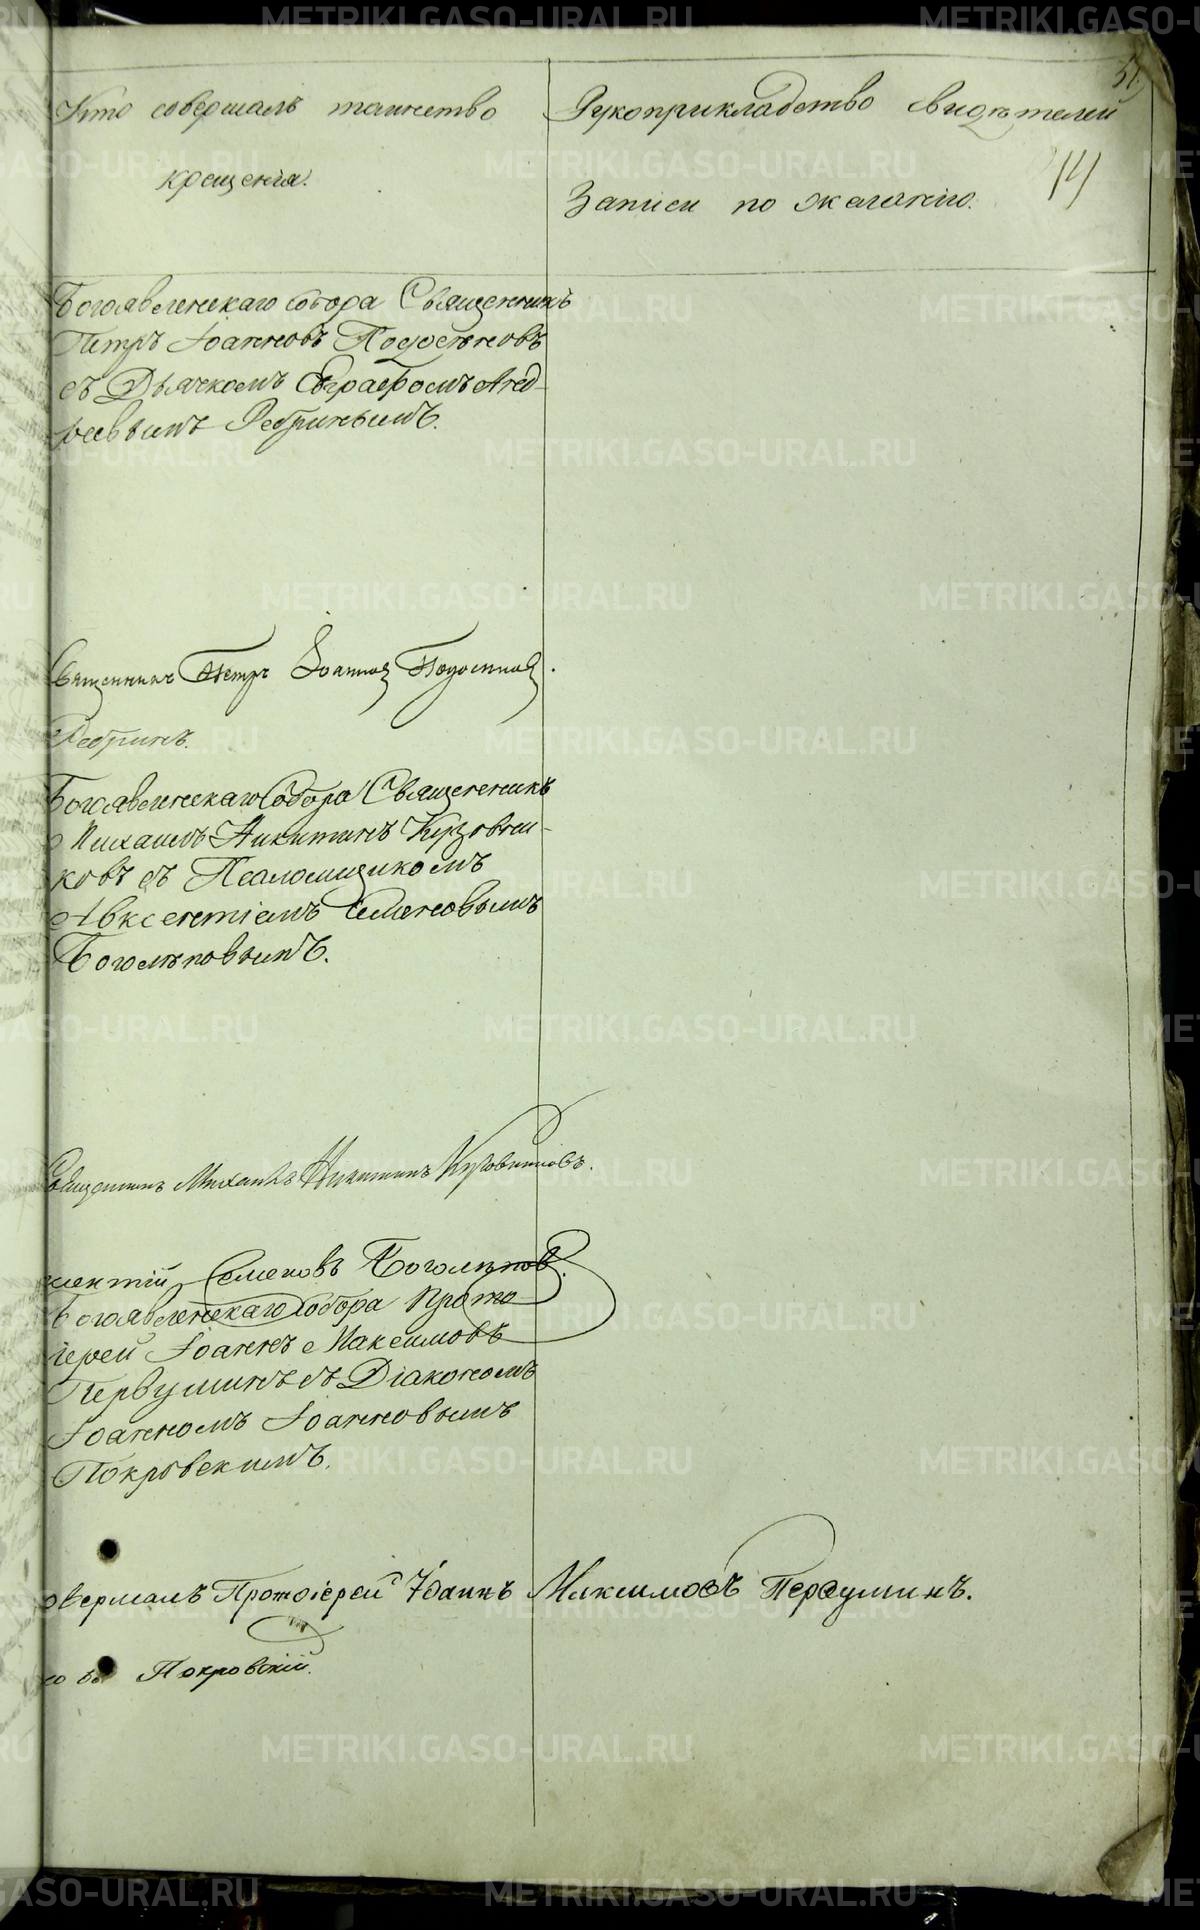 51.
Кто совершалъ таинство
крещенія.
Рукоприкладство свидѣтелей
записи по желанію.
14
Богоявленскаго собора Священникъ
Петръ Іоанновъ Подосеновъ
съ Дьячкомъ Евграфомъ Анд-
реевымъ Ребринымъ.
Священникъ Петръ Іоанновъ Подосеновъ.
Ребринъ.
Богоявленскаго Собора Священникъ
Михаилъ Никитинъ Кузовни-
ковъ съ Псаломщикомъ
Авксентіемъ Семеновымъ
Боголѣповымъ.
Священникъ Михаилъ Никитинъ Кузовниковъ.
сентій Семеновъ Боголѣповъ.
Богоявленскаго Собора Прото-
іерей Іоаннъ Максимовъ
Первушинъ съ Діакономъ
Іоанномъ Іоанновымъ
Покровскимъ.
овершалъ Протоіерей Іоаннъ Максимовъ Первушинъ.
Покровскій.
METRIKI.GASO-URAL.RU